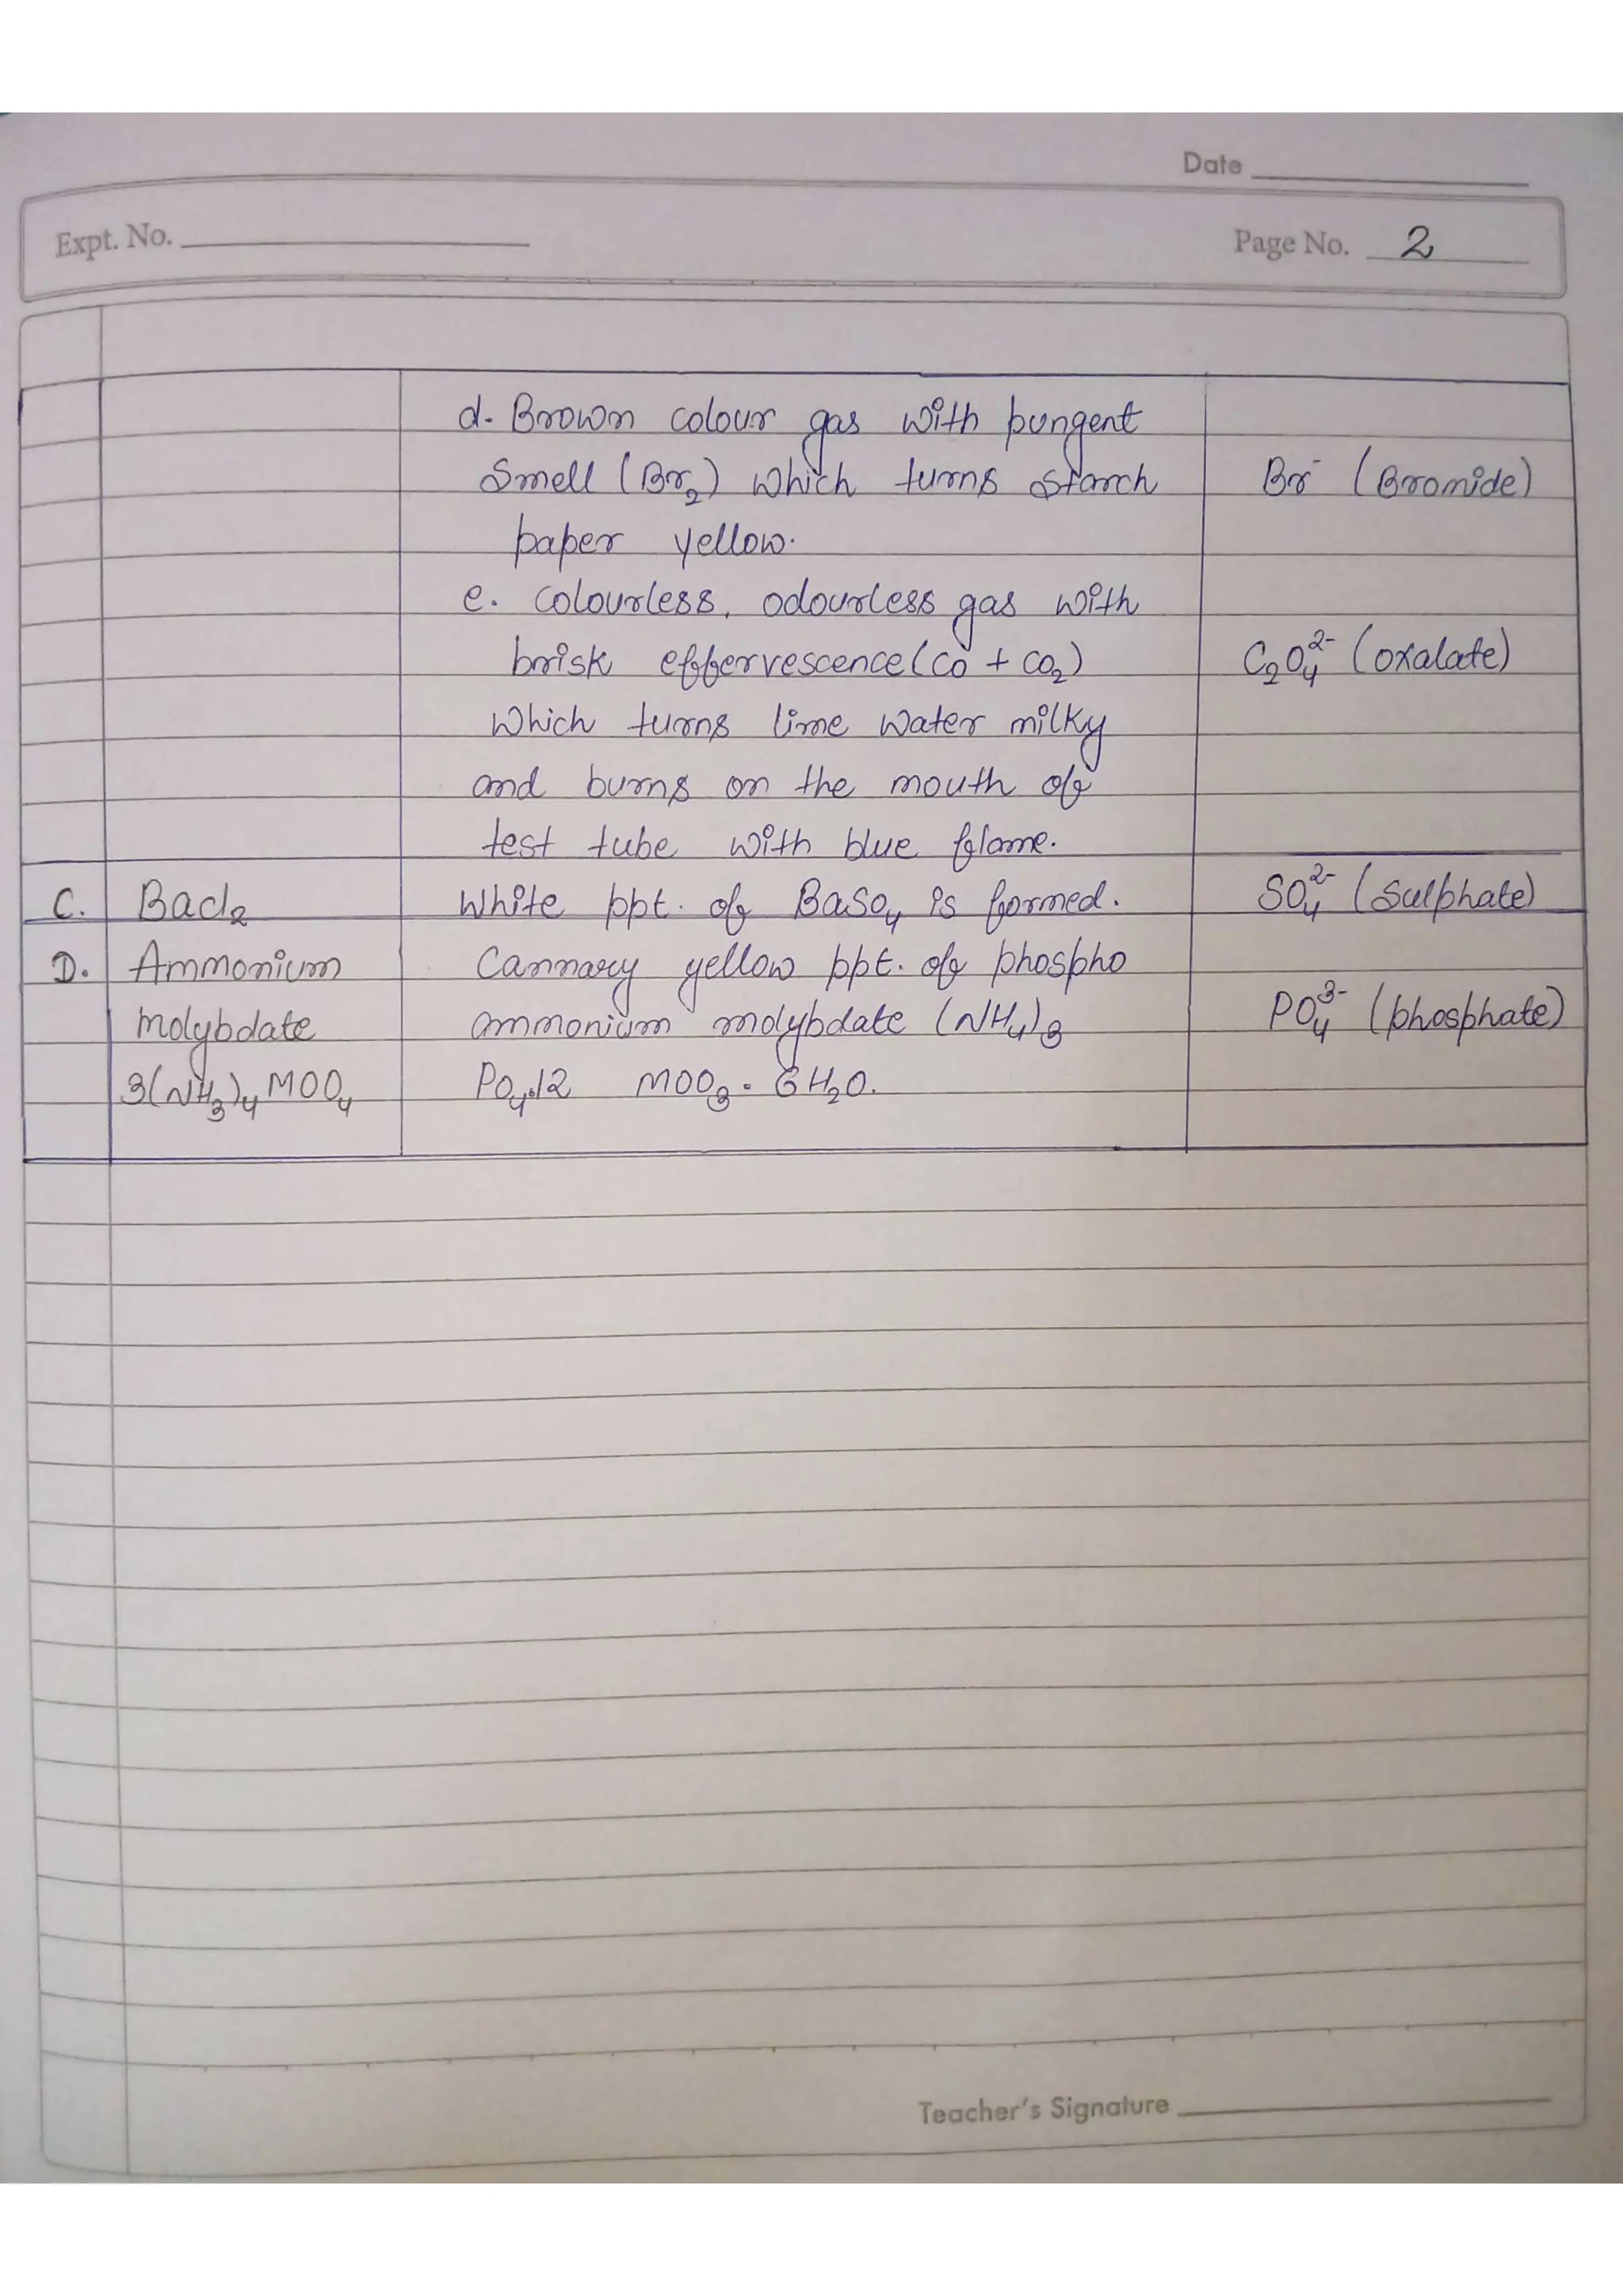 Date
Expt. No.
Page No. 2
d. Brown colour gas with pungent
Smell (Br₂) which turns starch
Br⁻ (Bromide)
paper yellow.
e. colourless, odourless gas with
brisk effervescence (CO + CO₂)
C₂O₄²⁻ (oxalate)
which turns lime water milky
and burns on the mouth of
test tube with blue flame.
C. Bacl₂ White ppt. of BaSO₄ is formed. SO₄²⁻ (Sulphate)
D. Ammonium Cannary yellow ppt. of phospho
molybdate ammonium molybdate (NH₄)₃ PO₄³⁻ (phosphate)
3(NH₃)₄ MOO₄ PO₄.12 MOO₃. 6H₂O.
Teacher's Signature